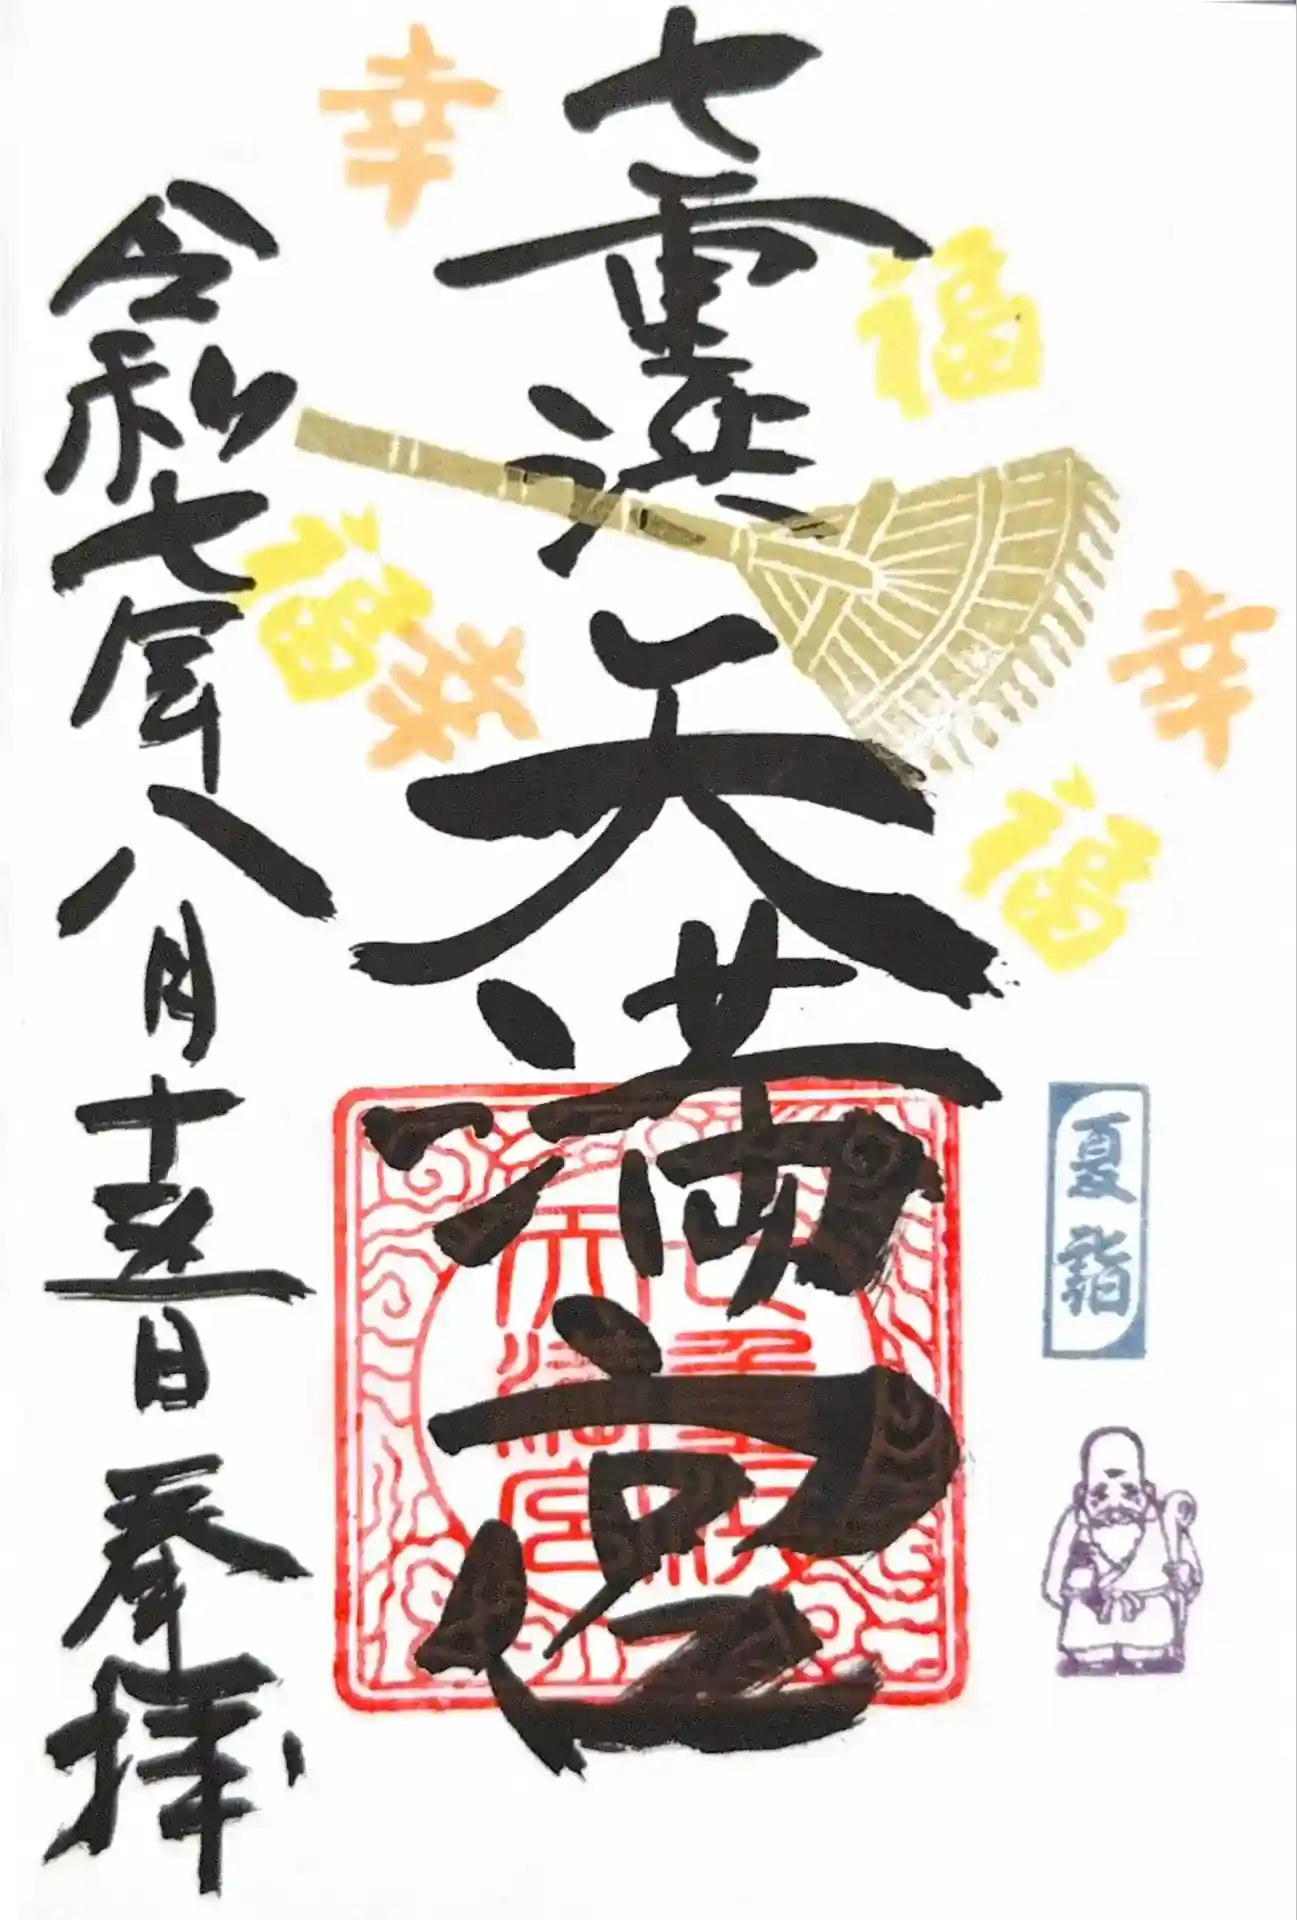 七霊渓天満宮
令和七年八月十五日 奉拝
夏詣
幸
福
福
幸
幸
福